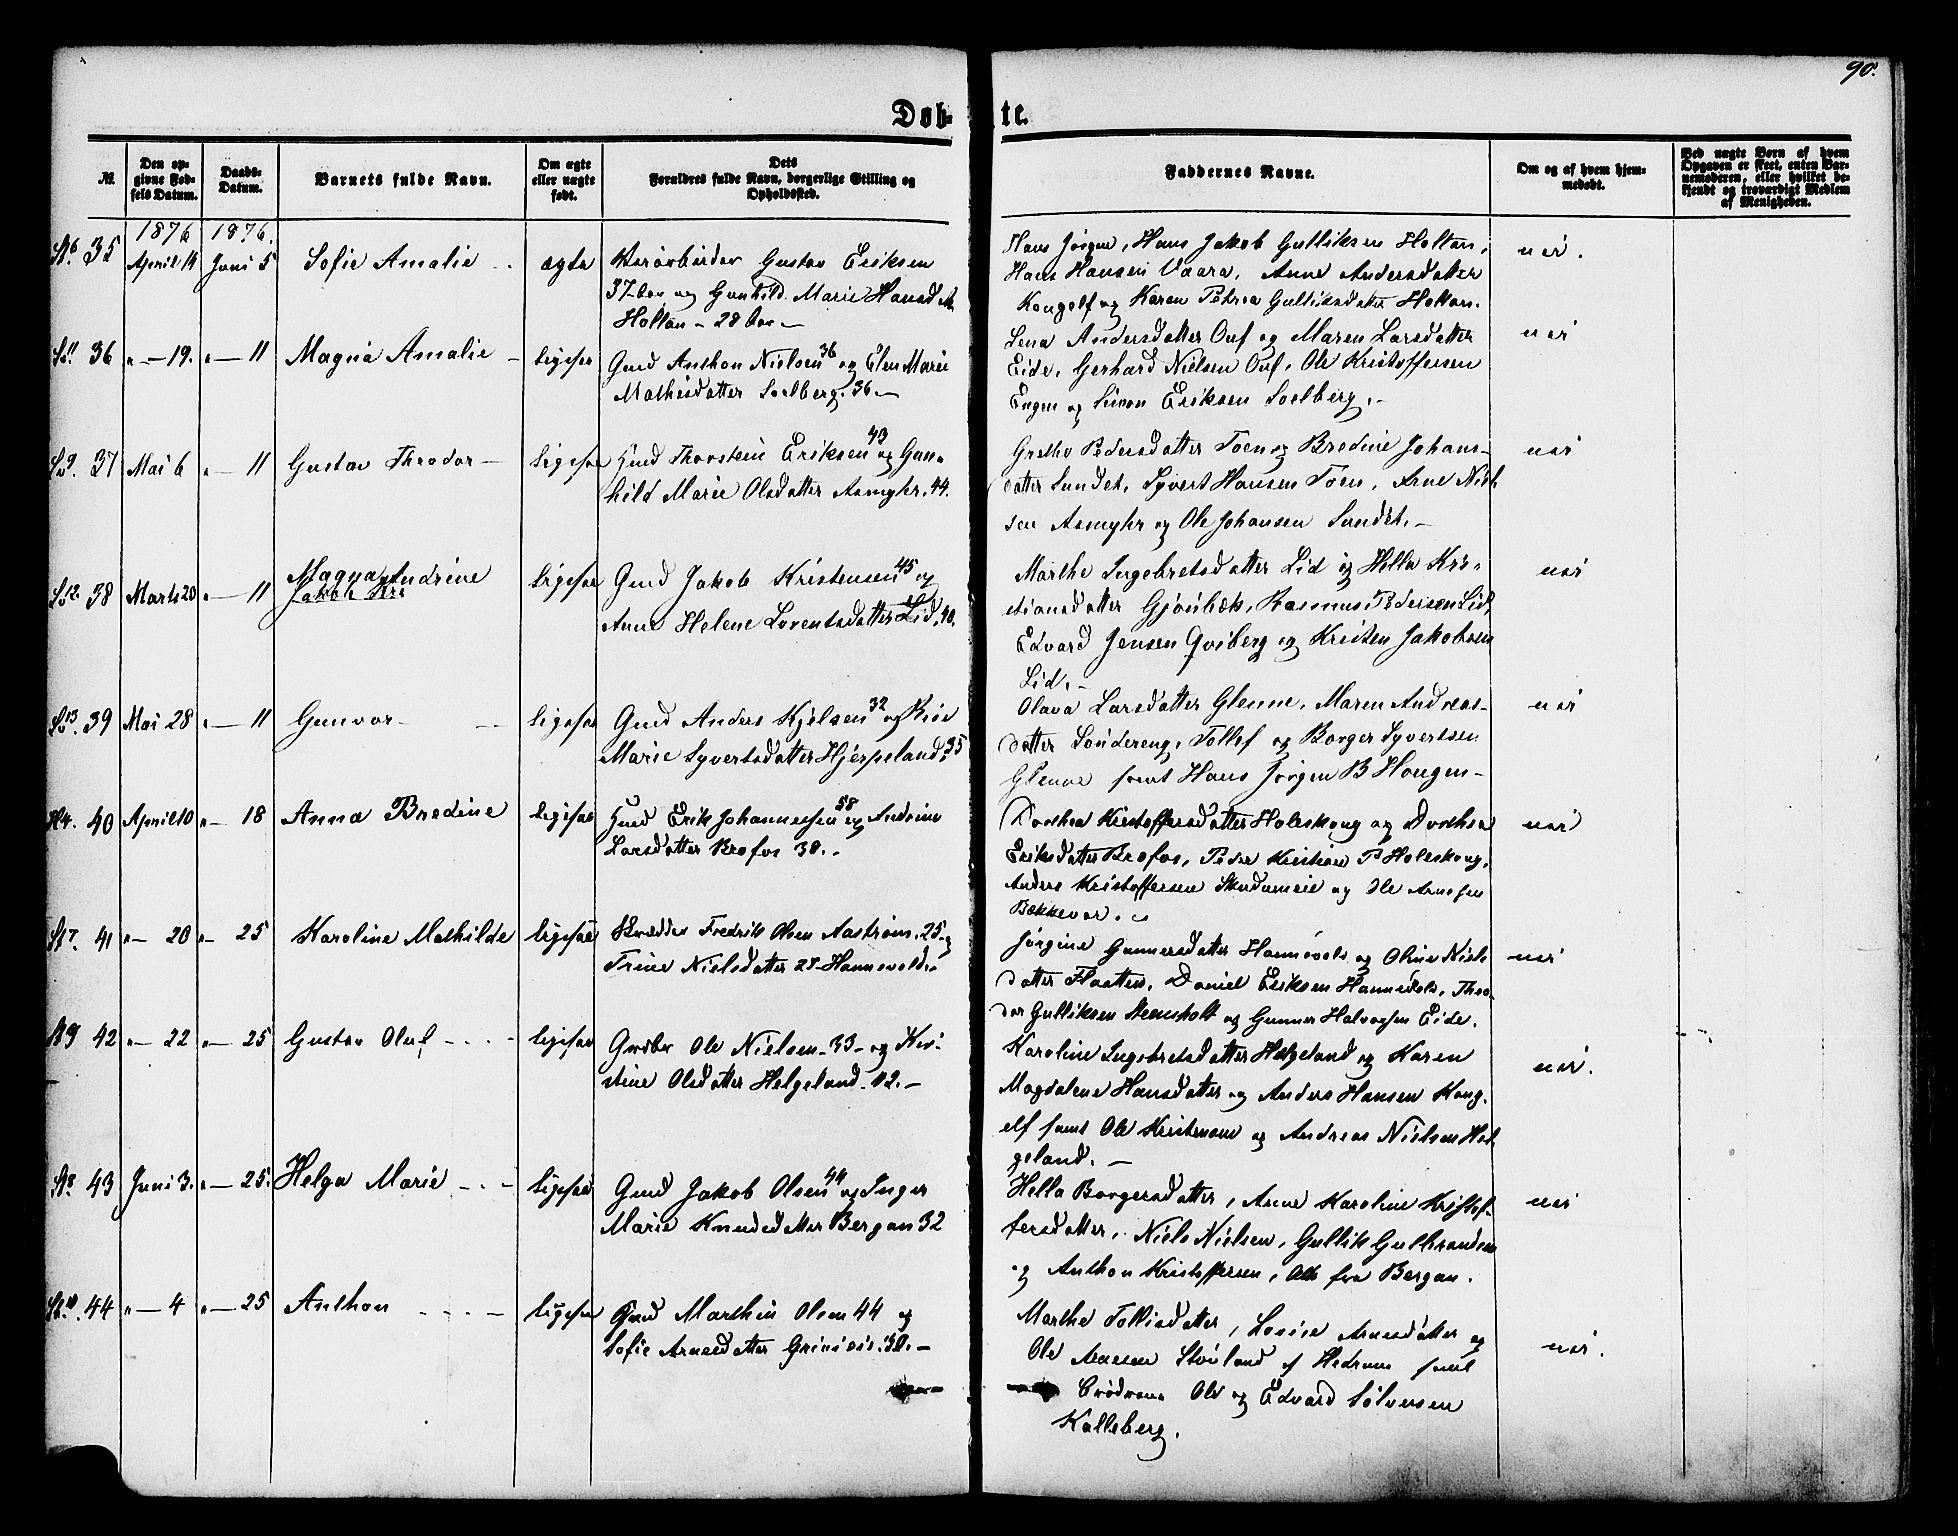 90.
Døb-te.
№.
Den op-
givne Fød-
sels Datum.
Daabs-
Datum.
Barnets fulde Navn.
Om ægte
eller uægte
født.
Dets
Forældres fulde Navn, borgerlige Stilling og
Opholdssted.
Faddernes Navne.
Om og af hvem hjem-
medøbt.
Ved uægte Børn af hvem
Opgaven er skeet, enten Bar-
nemoderen, eller hvilket be-
kjendt og troværdigt Medlem
af Menigheden.
1876 1876.
35 April 14 Juni 5 Sofie Amalie ægte Gustav Eriksen
37 og Gunhild Marie Hansd
Holtan - 28
Hans Jørgen, Hans Jakob Gulliksen Holtan,
Hans Hansen Vaara, Anne Andersdatter
Kongelf og Karen Petrea Gulliksdatter Holtan.
nei.
36 " - 19. " - 11 Magna Amalie - ligesaa Gmd Anthon Nielsen 36 og Elen Marie
Mathisdatter Solberg. 36 -
Lena Andersdatter Ouf og Maren Larsdatter
Eide, Gerhard Nielsen Ouf, Ole Kristoffersen
Engen og Simon Eriksen Solberg. -
nei
37 Mai 6 " - 11 Gustav Theodor - ligesaa Hmd Thorstein Eriksen 43 og Gun-
hild Marie Olsdatter Asmyhr. 44.
Grethe Pedersdatter Toen og Bredine Johans-
datter Sundet, Syvert Hansen Toen, Arne Niel-
sen Asmyhr og Ole Johansen Sundet. -
nei
38 Marts 20 " - 11 Magna Andrine
Jakob Kri
ligesaa Gmd Jakob Kristensen 45 og
Anne Helene Lorentsdatter Lid. 40.
Marthe Ingebretsdatter Lid og Hella Kri-
stiansdatter Gjønbæk, Rasmus Pedersen Lid,
Edvard Jensen Qviberg og Kristen Jakobsen
Lid. -
nei
39 Mai 28 " - 11 Gunvor - ligesaa Gmd Anders Kjelsen 32 og
Marie Syvertsdatter Hjerpeland. 35
Olava Larsdatter Glenne, Maren Andreas-
datter Søndereng, Tollef og Borger Syvertsen
Glenne samt Hans Jørgen B Haugen -
nei
40 April 10 " - 18 Anna Bredine ligesaa Hmd Erik Johannessen 58 og Andrine
Larsdatter Brofos 38. -
Dorthea Kristoffersdatter Holeskoug og Dorthea
Eriksdatter Brofos, Peder Kristian P Holeskoug,
Anders Kristoffersen og Ole Arnesen
Bækkevar. -
nei
41 " - 20 " - 25 Karoline Mathilde ligesaa Skrædder Fredrik Olsen Aastrøm. 25 og
Trine Nielsdatter 25 Hannevold. -
Jørgine Gunnersdatter Hannevold og Oline Niels-
datter Flaatten, Daniel Eriksen Hannevold, Theo-
dor Gulliksen Steensholt og Gunner Halvorsen Eide.
nei
42 " - 22 " - 25 Gustav Oluf - - - - ligesaa Ole Nielsen - 33 - og Kri-
stine Olsdatter Helgeland. 42. -
Karoline Ingebretsdatter Helgeland og Karen
Magdalene Hansdatter og Anders Hansen Kong-
elf samt Ole Kristensen og Andreas Nielsen Hel-
geland. -
nei.
43 Juni 3. " - 25. Helga Marie - - - ligesaa Gmd Jakob Olsen 44 og Inger
Marie Knudsdatter Bergan 32
Hella Borgersdatter, Anne Karoline Kristof-
fersdatter, Niels Nielsen, Gullik Gulbrandsen
og Anthon Kristoffersen, Alle fra Bergan.
nei
44 " - 4 " - 25 Anthon - - - - ligesaa Gmd Marthin Olsen 44 og
Sofie Arnesdatter 30. -
Marthe Tollisdatter, Lovise Arnesdatter og
Ole Arnesen Støvland af Hedrum samt
Brødrene Ole og Edvard Sølvesen
Kalleberg.
nei.